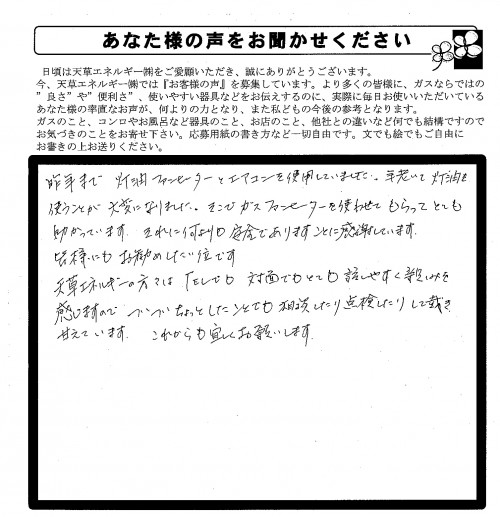 あなた様の声をお聞かせください
日頃は天草エネルギー㈱をご愛顧いただき、誠にありがとうございます。
今、天草エネルギー㈱では『お客様の声』を募集しています。より多くの皆様に、ガスならではの
”良さ”や”便利さ”、使いやすい器具などをお伝えするのに、実際に毎日お使いいただいている
あなた様の率直なお声が、何よりの力となり、また私どもの今後の参考となります。
ガスのこと、コンロやお風呂など器具のこと、お店のこと、他社との違いなど何でも結構ですので
お気づきのことをお寄せ下さい。応募用紙の書き方など一切自由です。文でも絵でもご自由に
お書きの上お送りください。
昨年まで 灯油ファンヒーターとエアコンを使用していました。年老いて灯油を
使うことが大変になりました。そこでガスファンヒーターを使わせてもらってとても
助かっています。それに何よりも安全でありますことに感謝しています。
皆様にもお勧めしたい位です
天草エネルギーの方々は TELでも 対面でもとても話しやすく親しみを
感じますので ついついちょっとしたことでも相談したり点検したりして戴き
甘えています。 これからも宜しくお願いします。